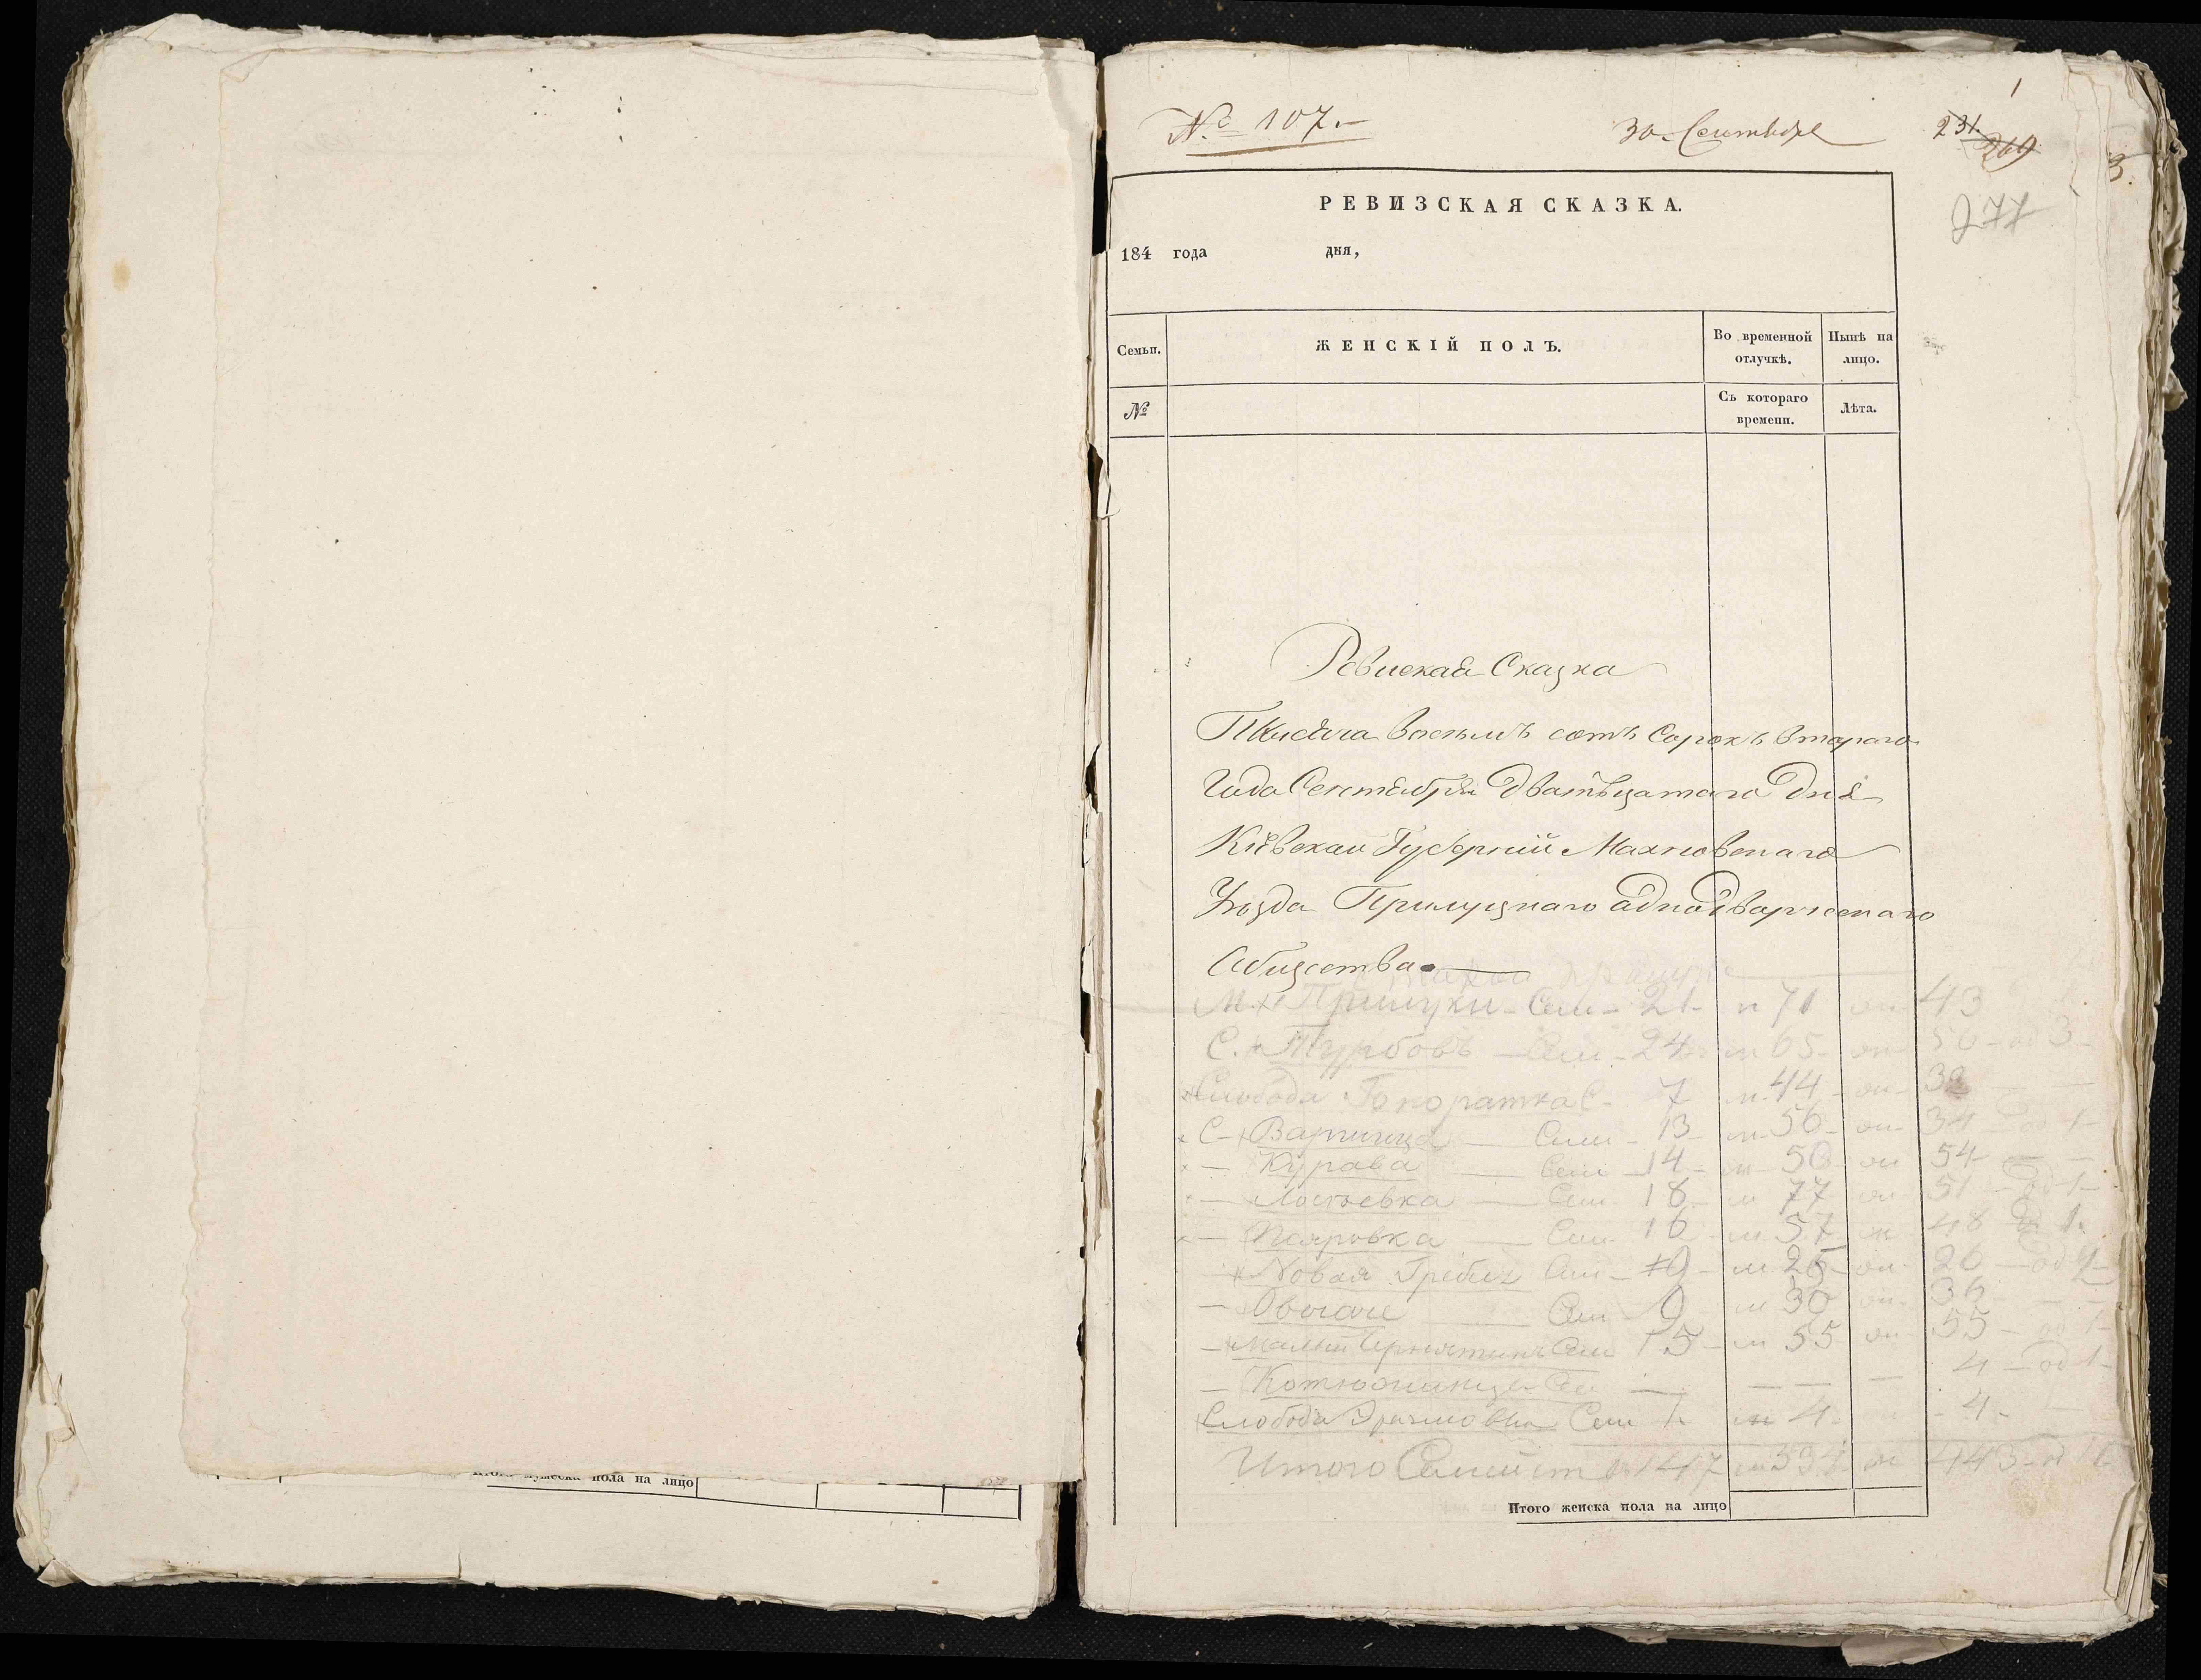 Итого мужеска пола на лицо
№ 107.
30. Сентября
1
231.
269
3.
277
РЕВИЗСКАЯ СКАЗКА.
184 года дня,
Семьи. ЖЕНСКІЙ ПОЛЪ. Во временной отлучкѣ. Нынѣ на лицо.
№ Съ котораго времени. Лѣта.
Ревиская Сказка
Тысяча восемь сотъ Сорокъ втораго
Года Сентября Дватьцатаго Дня
Кіевскои Губерніи Махновскаго
Уѣзда Прилуцкаго аднодворческаго
Общества
М. Прилуки Сем 21 м 71 43
С. Турбовъ Сем 24 м 65 50 од 3
Слобода С 7 м 44 32
С Сем 13 м 56 34 од 1
Курава Сем 14 м 50 54
Лосіевка Сем 18 м 77 51 од 1
Сем 16 м 57 ж 48 1
Новая Гребля Сем 9 м 25 26 од
Сем 9 м 30 36
Малый Чернятинъ Сем 15 м 55 55 од 1
Котюжинце 4 од 1
Слобода Сем 1 м 4 4
Итого Семейств 147 м 534 443
Итого женска пола на лицо